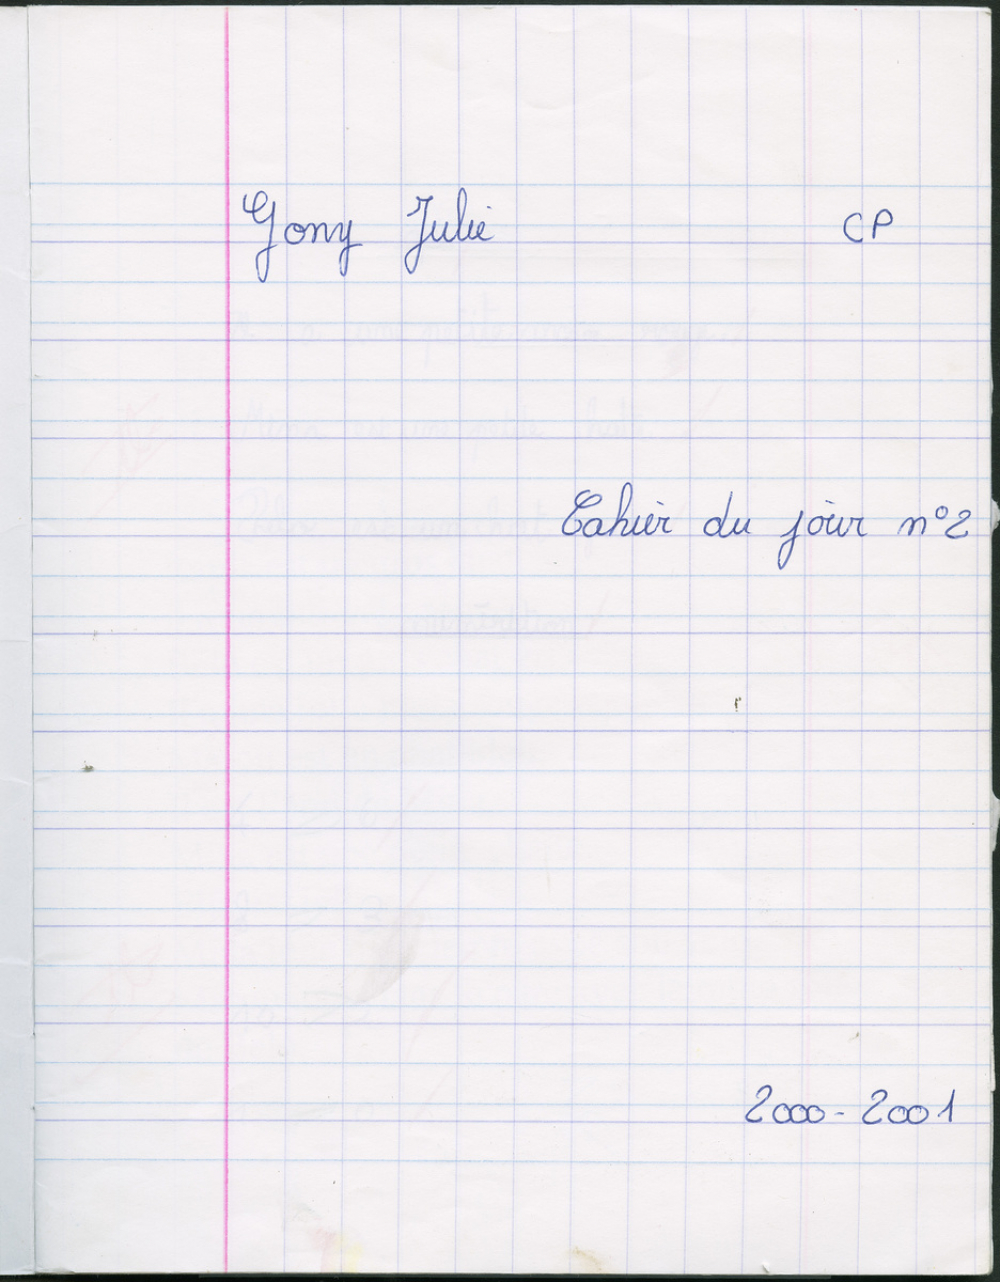 Gony Julie CP
Cahier du jour n°2
2000-2001